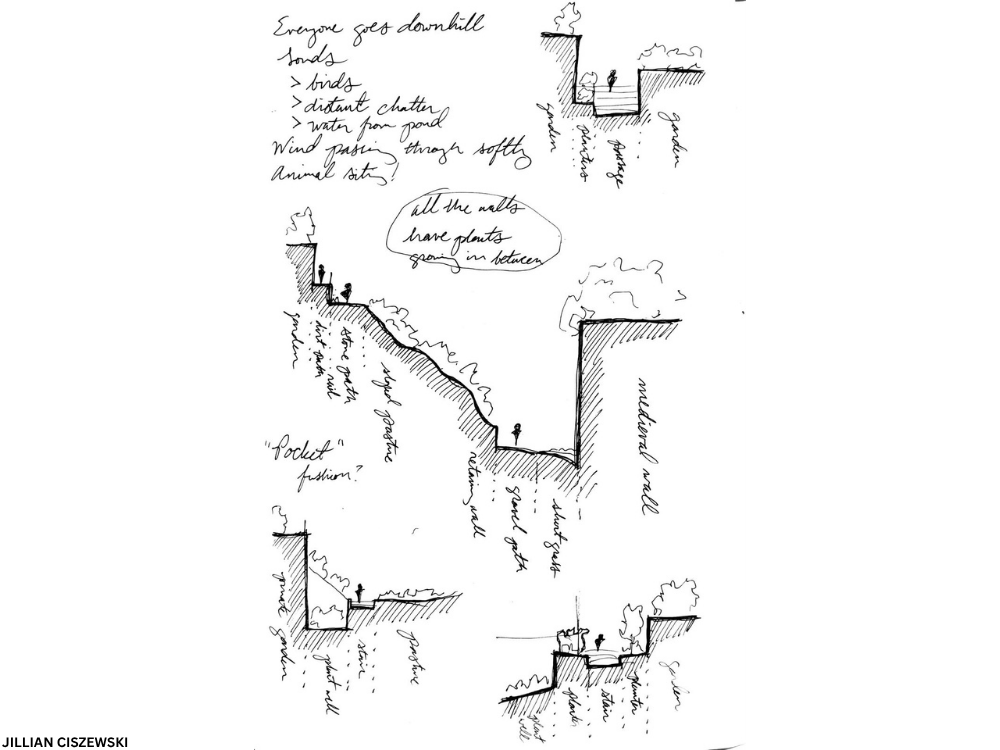 Everyone goes downhill
Sonds
> birds
> distant chatter
> water from pond
Wind passing through softly
Animal siting!
garden
planters
passage
garden
all the walls
have plants
growing in between
garden
dirt path
stone path
sloped pasture
retaing wall
gravel path
short grass
medieval wall
"Pocket"
fushion?
private garden
plant well
stair
pasture
plant well
planter
stair
planter
garden
JILLIAN CISZEWSKI